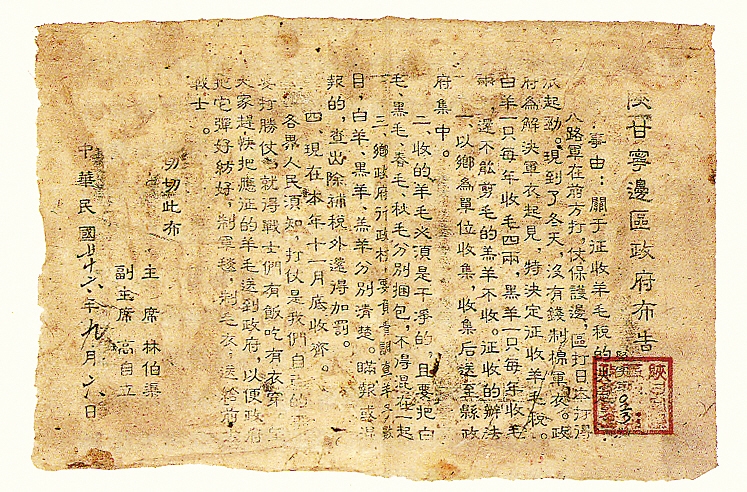 陝甘寧邊區政府布告
事由：關于征收羊毛稅的
八路軍在前方打仗保護邊區打日本打得
起勁。現到了冬天，沒有錢制棉軍衣。政
府為解決軍衣起見，特決定征收羊毛稅。
白羊一只每年收毛四兩，黑羊一只每年收毛
還不能剪毛的羔羊不收。征收的辦法
一、以鄉為單位收集，收集后送至縣政
府集中。
二、收的羊毛必須是干淨的，且要把白
毛、黑毛、春毛、秋毛分別捆包，不得混在一起
三、鄉政府行政村，要負責調查羊子數
目，白羊、黑羊、羔羊分別清楚。瞞報或
報的，查出除補稅外還得加罰。
四、現在本年十一月底收齊。
各界人民須知，打仗是我們自己的
要打勝仗就得戰士們有飯吃有衣穿
大家趕快把應征的羊毛送到政府，以便政府
把它彈好紡好，制軍毯，制毛衣，送給前
戰士。
切切此布
主席 林伯渠
副主席 高自立
中華民國廿六年九月六日